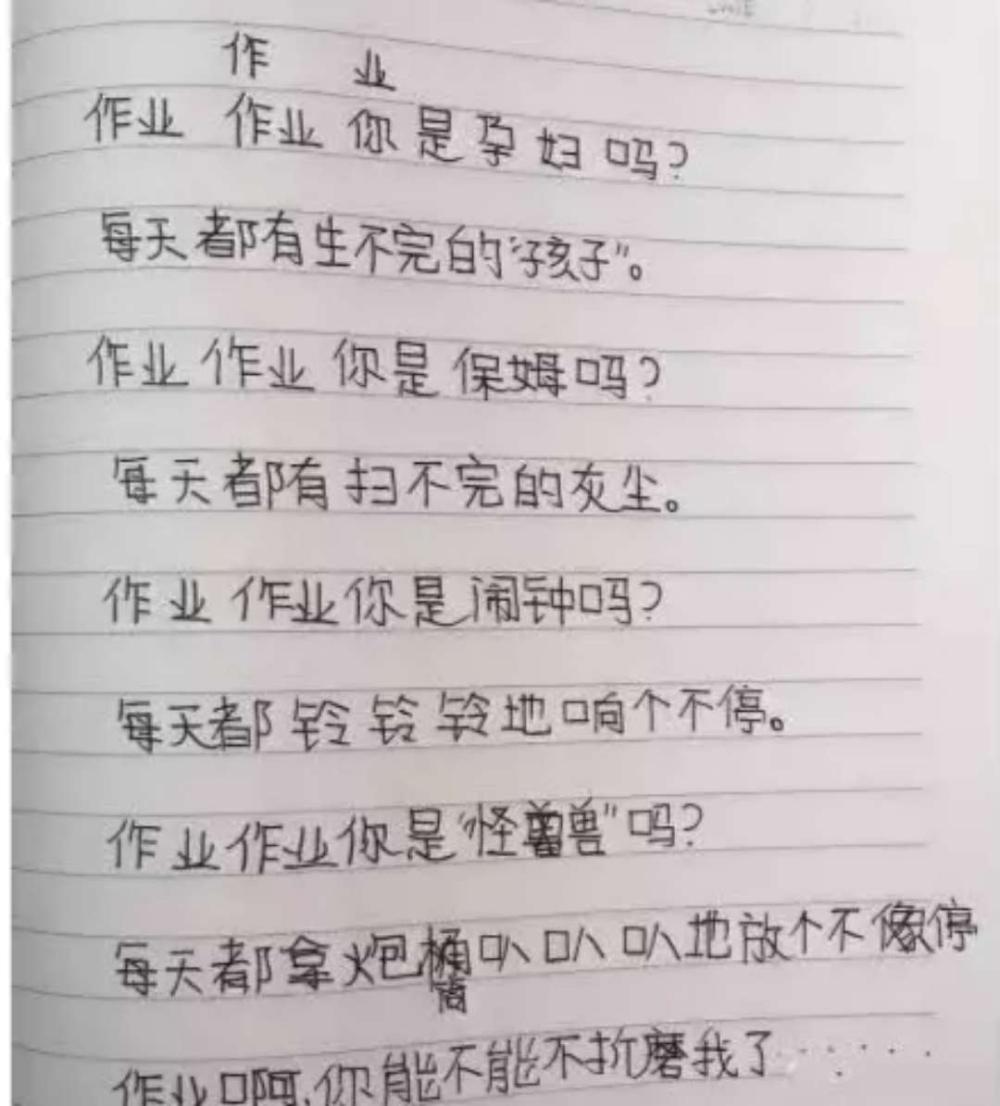 作 业
作业 作业 你是孕妇吗?
每天都有生不完的“孩子”。
作业 作业 你是保姆吗?
每天都有扫不完的灰尘。
作业 作业你是闹钟吗?
每天都铃铃铃地响个不停。
作业作业你是“怪兽”吗?
每天都拿炮筒叭叭叭地放个不停
作业啊,你能不能不折磨我了······